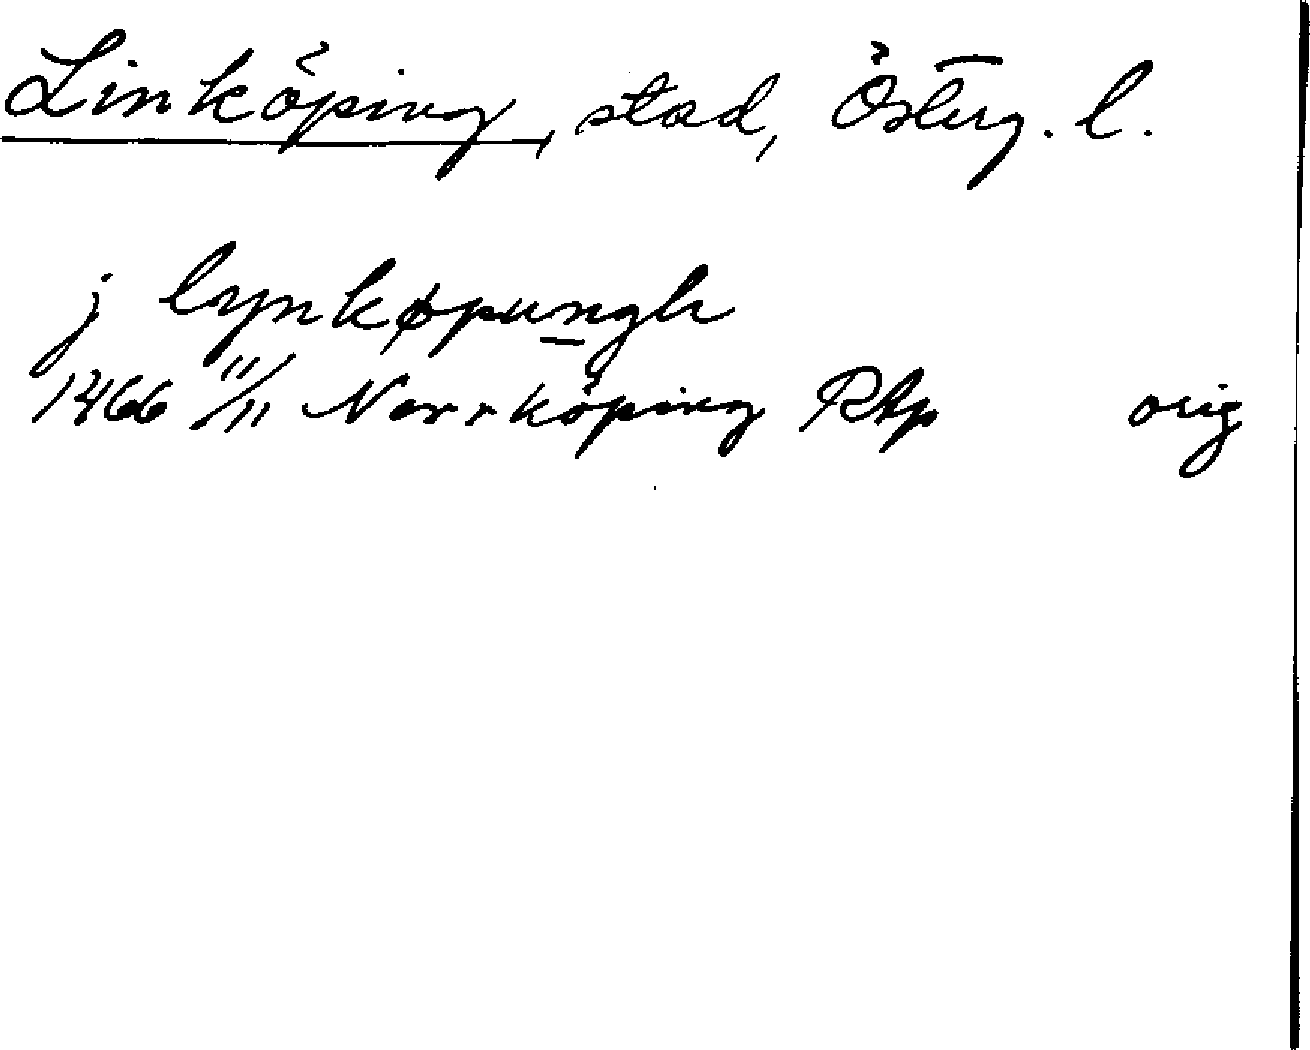 Linköping, stad, Österg. l.
j lynkøpungh
1466 11/11 Norrköping RAp orig